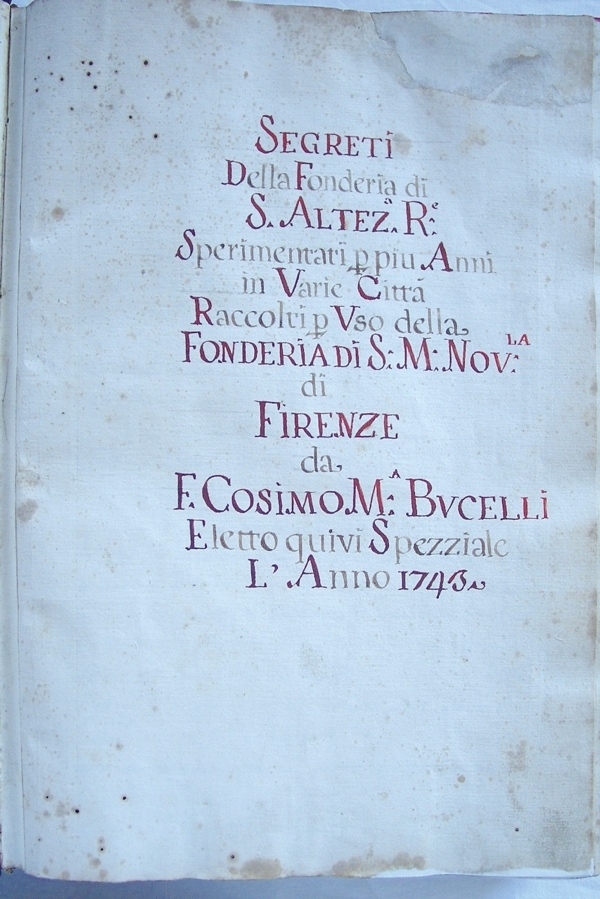 SEGRETI
Della Fonderia di
S. ALTEZ.ª R.ᵉ
Sperimentati p̱ piu Anni
in Varie Città
Raccolti p̱ Vso della
FONDERIA DI S: M: NOV:ᴸᴬ
di
FIRENZE
da
F. COSIMO M:ᴬ BVCELLI
Eletto quivi Spezziale
L' Anno 1743